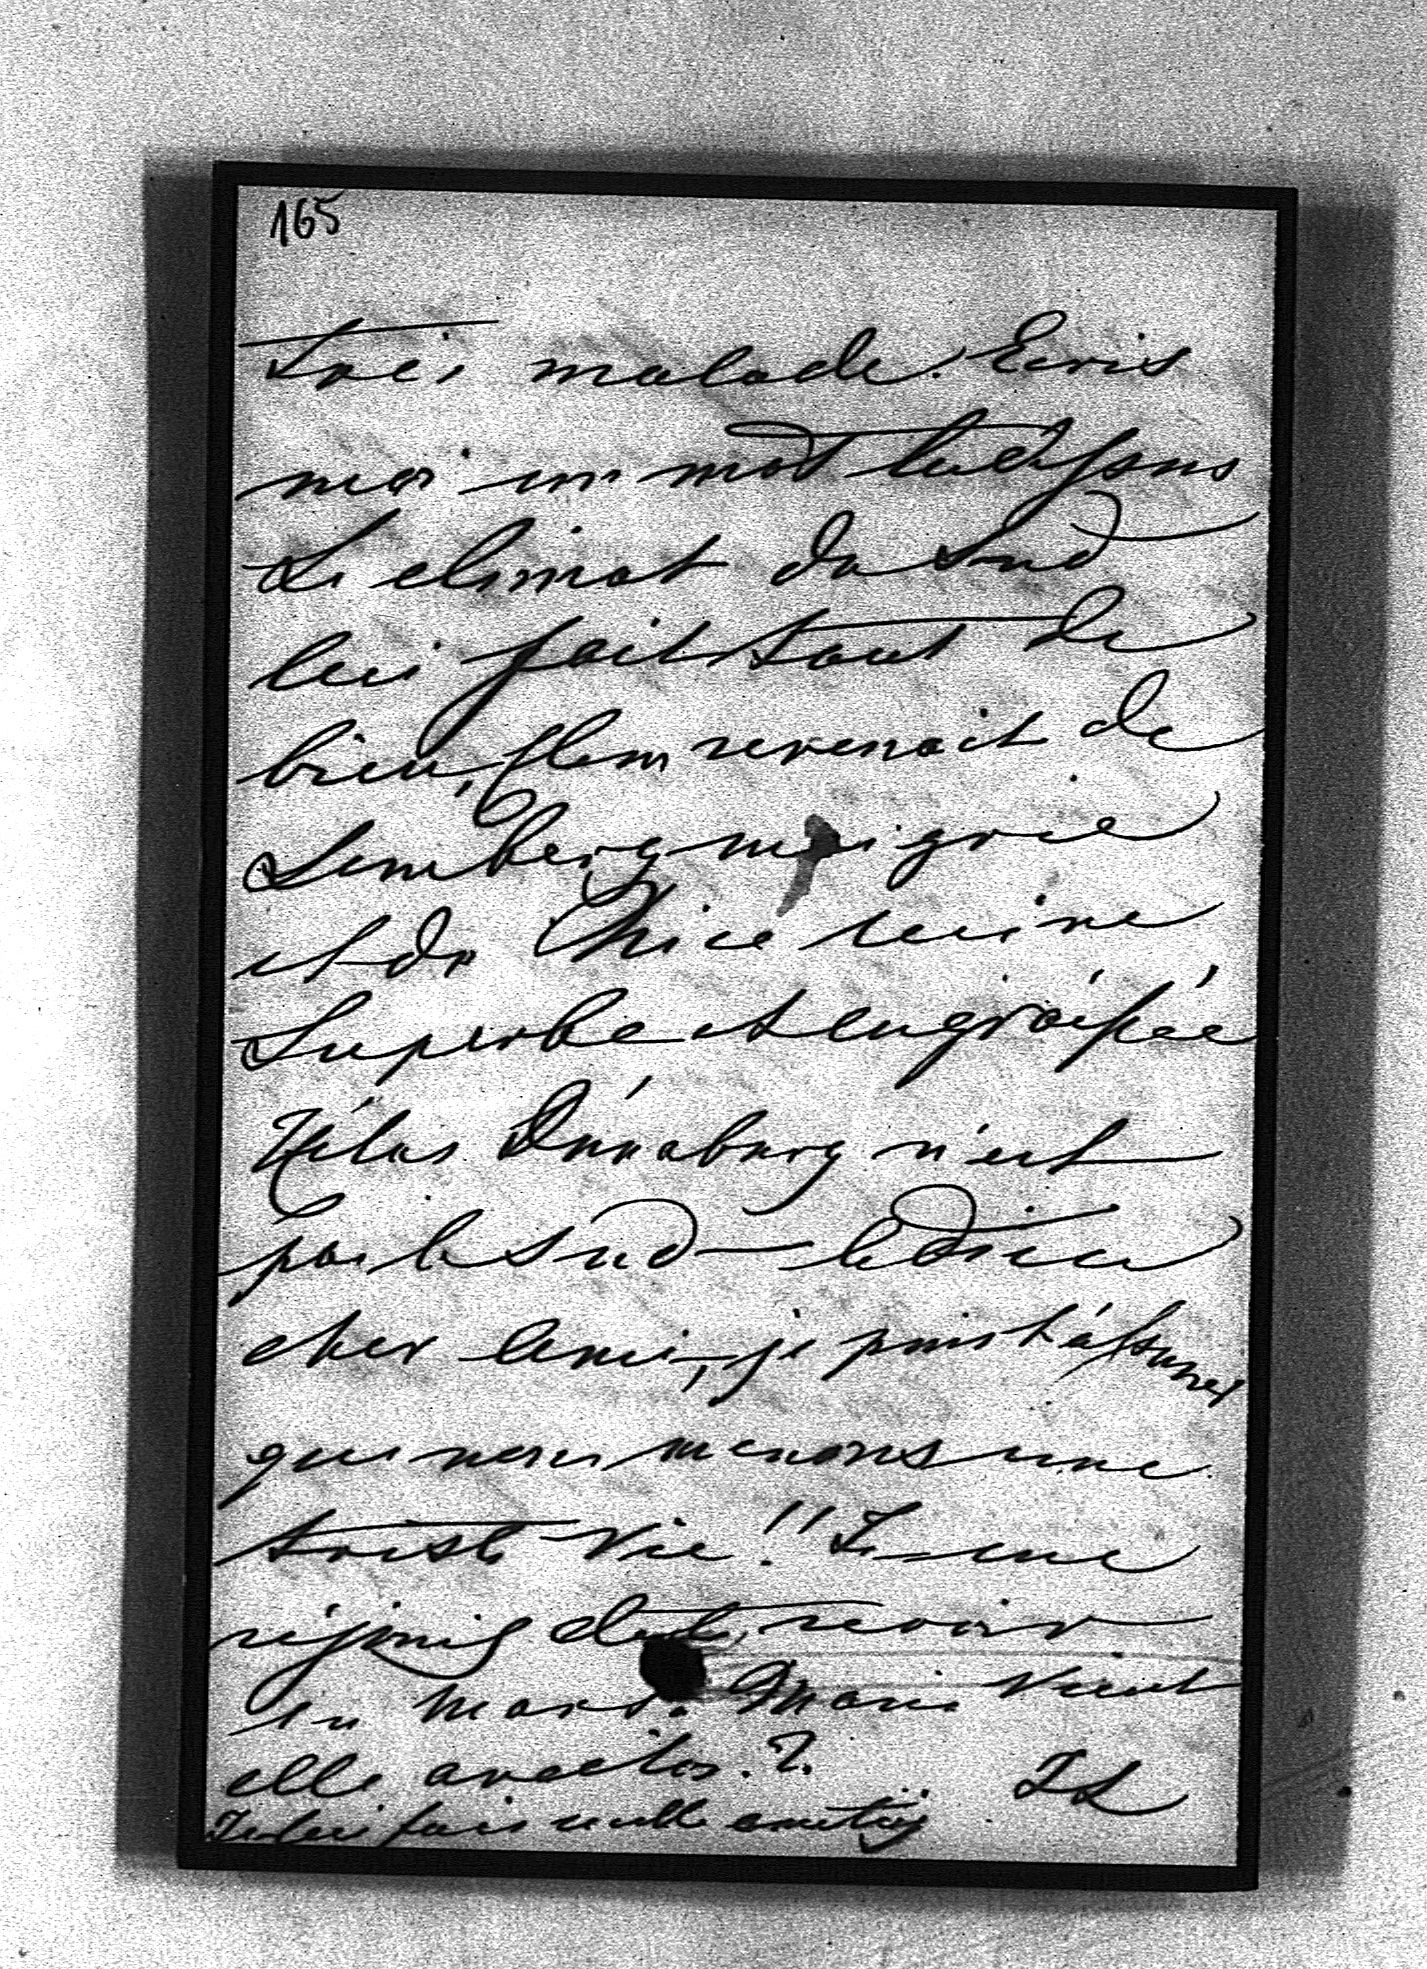 165
Très malade. Ecris
moi un mot la dessus
Le climat du Sud
lui fait tout de
bien, Clem revenait de
Lemberg maigrie
et de Nice reine
Superbe et engraissée
Hélas Dünaburg n'est
pas le sud — le dieu
cher ami, je puis t'assurer
que nous menons une
triste vie!! Je me
réjouis de te revoir
en mars. Marie vient
elle avec toi.?
Je lui fais mille amitiés